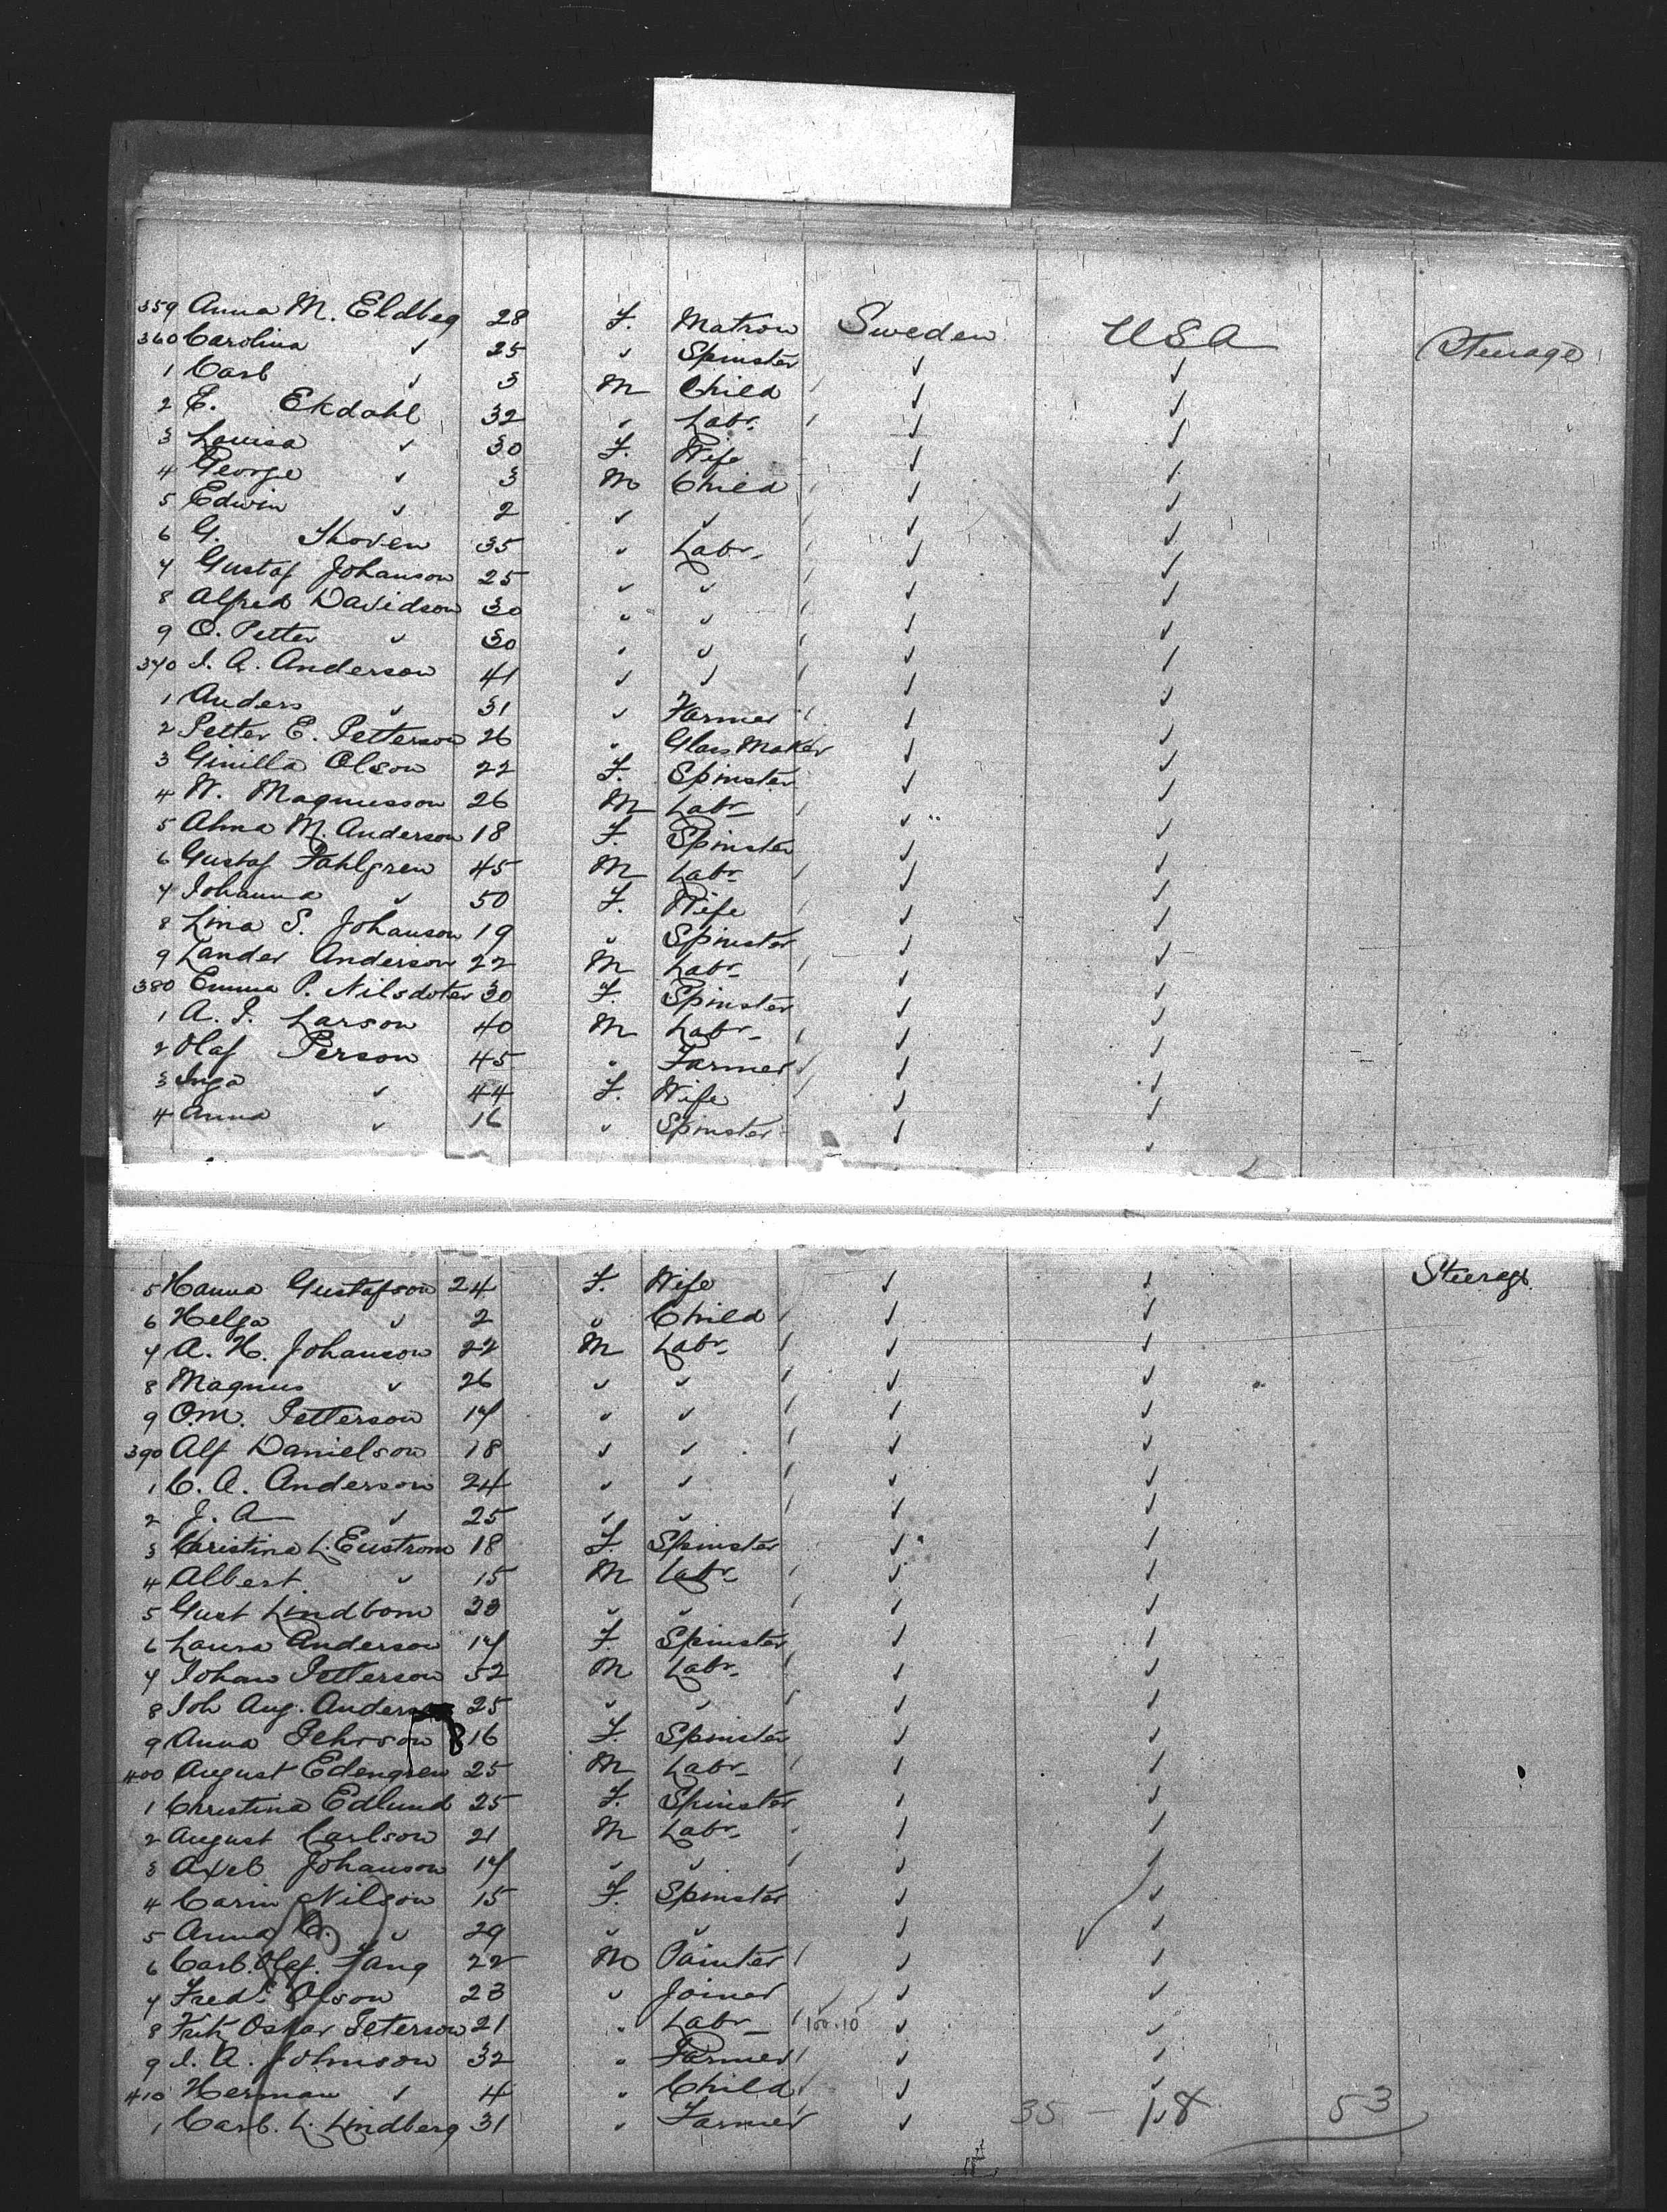 359 Anna M. Eldbeg 28 F. Matron Sweden USA Steerage
360 Carolina ✓ 25 ✓ Spinster ✓ ✓
1 Carl ✓ 3 M Child ✓ ✓
2 E. Ekdahl 32 ✓ Labr. ✓ ✓
3 Louisa ✓ 30 F. Wife ✓ ✓
4 George ✓ 3 M Child ✓ ✓
5 Edwin ✓ 2 ✓ ✓ ✓ ✓
6 G. Thoren 35 ✓ Labr. ✓ ✓
7 Gustaf Johanson 25 ✓ ✓ ✓ ✓
8 Alfred Davidson 30 ✓ ✓ ✓ ✓
9 O. Petter ✓ 30 ✓ ✓ ✓ ✓
370 I. A. Anderson 41 ✓ ✓ ✓ ✓
1 Anders ✓ 31 ✓ Farmer ✓ ✓
2 Petter E. Petterson 26 ✓ Glass Maker ✓ ✓
3 Ginilla Olson 22 F. Spinster ✓ ✓
4 W. Magnusson 26 M Labr. ✓ ✓
5 Alma M. Anderson 18 F. Spinster ✓ ✓
6 Gustaf Fahlgren 45 M Labr. ✓ ✓
7 Johanna ✓ 50 F. Wife ✓ ✓
8 Lina S. Johanson 19 ✓ Spinster ✓ ✓
9 Lander Anderson 22 M Labr. ✓ ✓
380 Emma P. Nilsdoter 30 F. Spinster ✓ ✓
1 A. J. Larson 40 M Labr. ✓ ✓
2 Olaf Person 45 ✓ Farmer ✓ ✓
3 Inga ✓ 44 F. Wife ✓ ✓
4 Anna ✓ 16 ✓ Spinster ✓ ✓
5 Hanna Gustafson 24 F. Wife ✓ ✓ Steerage
6 Helga ✓ 2 ✓ Child ✓ ✓
7 A. H. Johanson 22 M Labr. ✓ ✓
8 Magnus ✓ 26 ✓ ✓ ✓ ✓
9 O.M. Petterson 17 ✓ ✓ ✓ ✓
390 Alf Danielson 18 ✓ ✓ ✓ ✓
1 C. A. Anderson 24 ✓ ✓ ✓ ✓
2 J. A ✓ 25 ✓ ✓ ✓ ✓
3 Christina L. Enstrom 18 F. Spinster ✓ ✓
4 Albert ✓ 15 M Labr. ✓ ✓
5 Gust Lindbom 23 ✓ ✓ ✓ ✓
6 Laura Anderson 17 F. Spinster ✓ ✓
7 Johan Petterson 52 M Labr. ✓ ✓
8 Joh Aug. Anderson 25 ✓ ✓ ✓ ✓
9 Anna Pehrson 16 F. Spinster ✓ ✓
400 August Edengren 25 M Labr. ✓ ✓
1 Christina Edlund 25 F. Spinster ✓ ✓
2 August Carlson 21 M Labr. ✓ ✓
3 Axel Johanson 17 ✓ ✓ ✓ ✓
4 Carin Nilson 15 F. Spinster ✓ ✓
5 Anna C. ✓ 29 ✓ ✓ ✓ ✓
6 Carl. Olaf. Fang 22 M Painter ✓ ✓
7 Fredk Olson 23 ✓ Joiner ✓ ✓
8 Fritz Oskar Peterson 21 ✓ Labr. 100.10 ✓ ✓
9 I. A. Johnson 32 ✓ Farmer ✓ ✓
410 Herman ✓ 4 ✓ Child ✓ ✓
1 Carl. L. Lindberg 31 ✓ Farmer ✓ 35 - 18 53